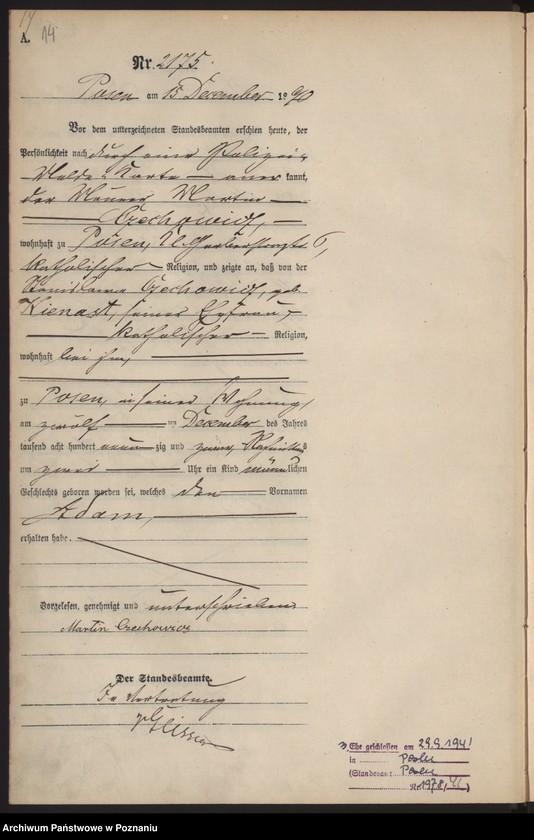 14
A. 14
Nr. 2175.
Posen am 15 December 1890
Vor dem unterzeichneten Standesbeamten erschien heute, der
Persönlichkeit nach durch eine Polizei-
Melde-Karte — aner kannt,
der Maurer Martin
Czechowicz,
wohnhaft zu Posen, 6,
katholischer Religion, und zeigte an, daß von der
Stanislawa Czechowicz, geb.
Kienast, seiner Ehefrau
katholischer Religion,
wohnhaft bei ihm,
zu Posen, in seiner Wohnung,
am zwölf ten December des Jahres
tausend acht hundert neun zig und Nachmittags
um zwei Uhr ein Kind männlichen
Geschlechts geboren worden sei, welches den Vornamen
Adam,
erhalten habe.
Vorgelesen, genehmigt und unterschrieben
Martin Czechowicz
Der Standesbeamte.
In Vertretung
3, Ehe geschlossen am 29.9.1941
in Posen
(Standesamt Posen
Nr. 1978/41)
Archiwum Państwowe w Poznaniu